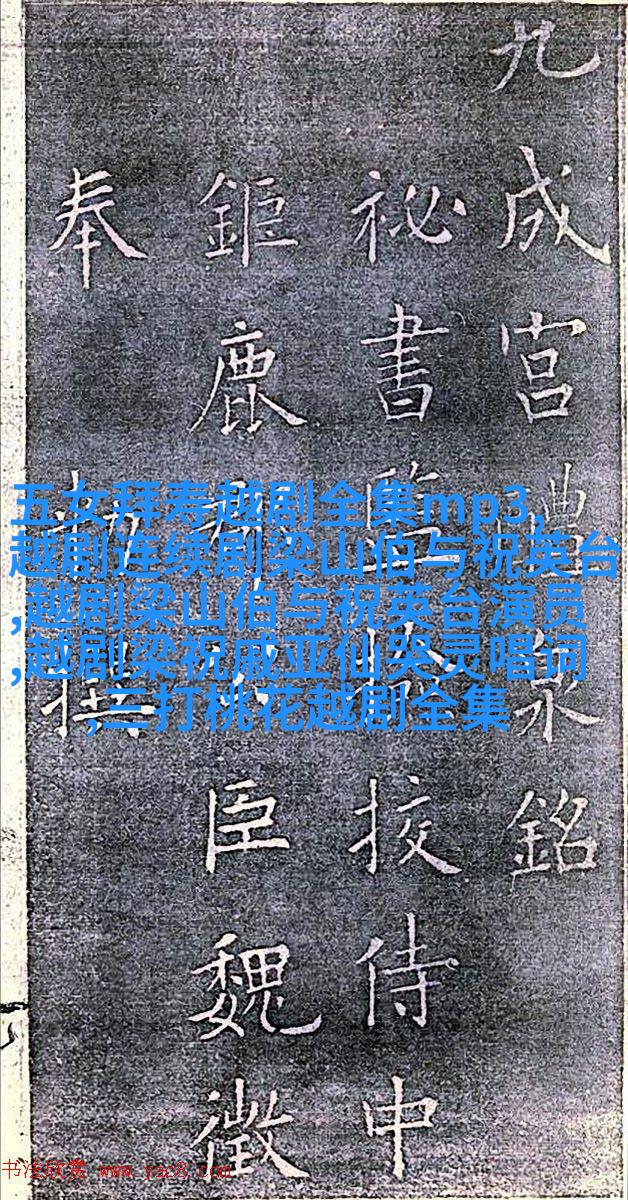 九成宮醴泉銘
祕書監檢挍侍中
鉅鹿郡公臣魏徵
奉勑撰
五女拜寿越剧全集mp3,
越剧连续剧梁山伯与祝英台
,越剧梁山伯与祝英台演员
,越剧梁祝戚亚仙哭灵唱词
,三打桃花越剧全集
书法欣赏 www.yac8.com